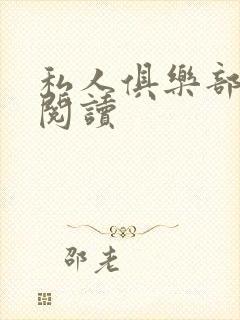 私人俱樂部
閱讀
邵老